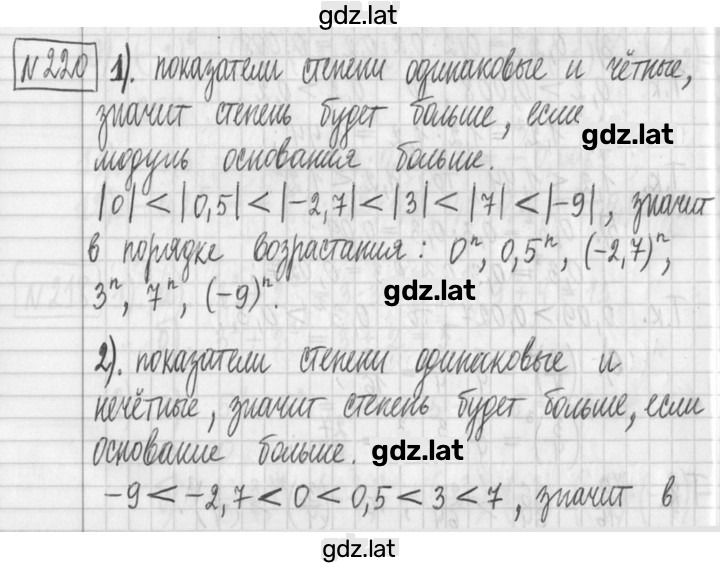 gdz.lat
№220 1). показатели степени одинаковые и чётные,
значит степень будет больше, если
gdz.lat
модуль основания больше.
|0| < |0,5| < |-2,7| < |3| < |7| < |-9|, значит
в порядке возрастания: 0ⁿ, 0,5ⁿ, (-2,7)ⁿ,
3ⁿ, 7ⁿ, (-9)ⁿ.
gdz.lat
2). показатели степени одинаковые и
нечётные, значит степень будет больше, если
основание больше.
gdz.lat
-9 < -2,7 < 0 < 0,5 < 3 < 7, значит в
gdz.lat